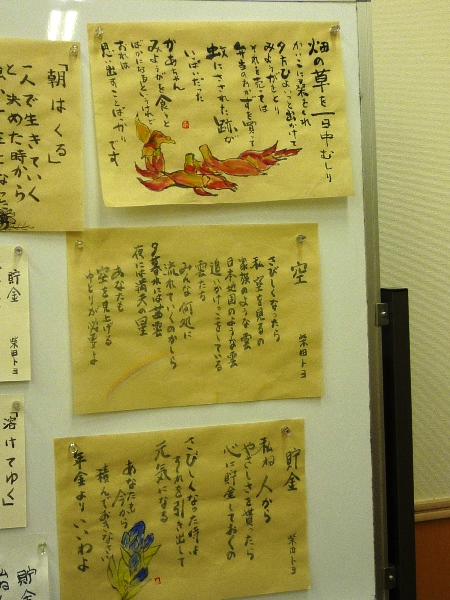 畑の草を一日中むしり
かいこに桑をくれ
夕方ひょいと出かけて
みょうがをとり
それを売っては
弁当のおかずを買って
蚊にさされた跡が
いっぱいだった
かあちゃん
みょうがを食うと
ばかになるというけれど
おれは
思い出すことばかりです
「朝はくる」
一人で生きていく
と 決めた時から
空
柴田トヨ
さびしくなったら
私 空を見るの
家族のような雲
日本地図のような雲
追いかけっこをしている
雲たち
みんな何処に
流れていくのかしら
夕暮れには茜雲
夜には満天の星
あなたも
空を見上げる
ゆとりが必要よ
貯金
柴田トヨ
貯金
柴田トヨ
私ね 人から
やさしさを貰ったら
心に貯金しておくの
さびしくなった時は
それを引き出して
元気になる
あなたも 今から
積んでおきなさい
年金より いいわよ
「溶けてゆく」
貯金